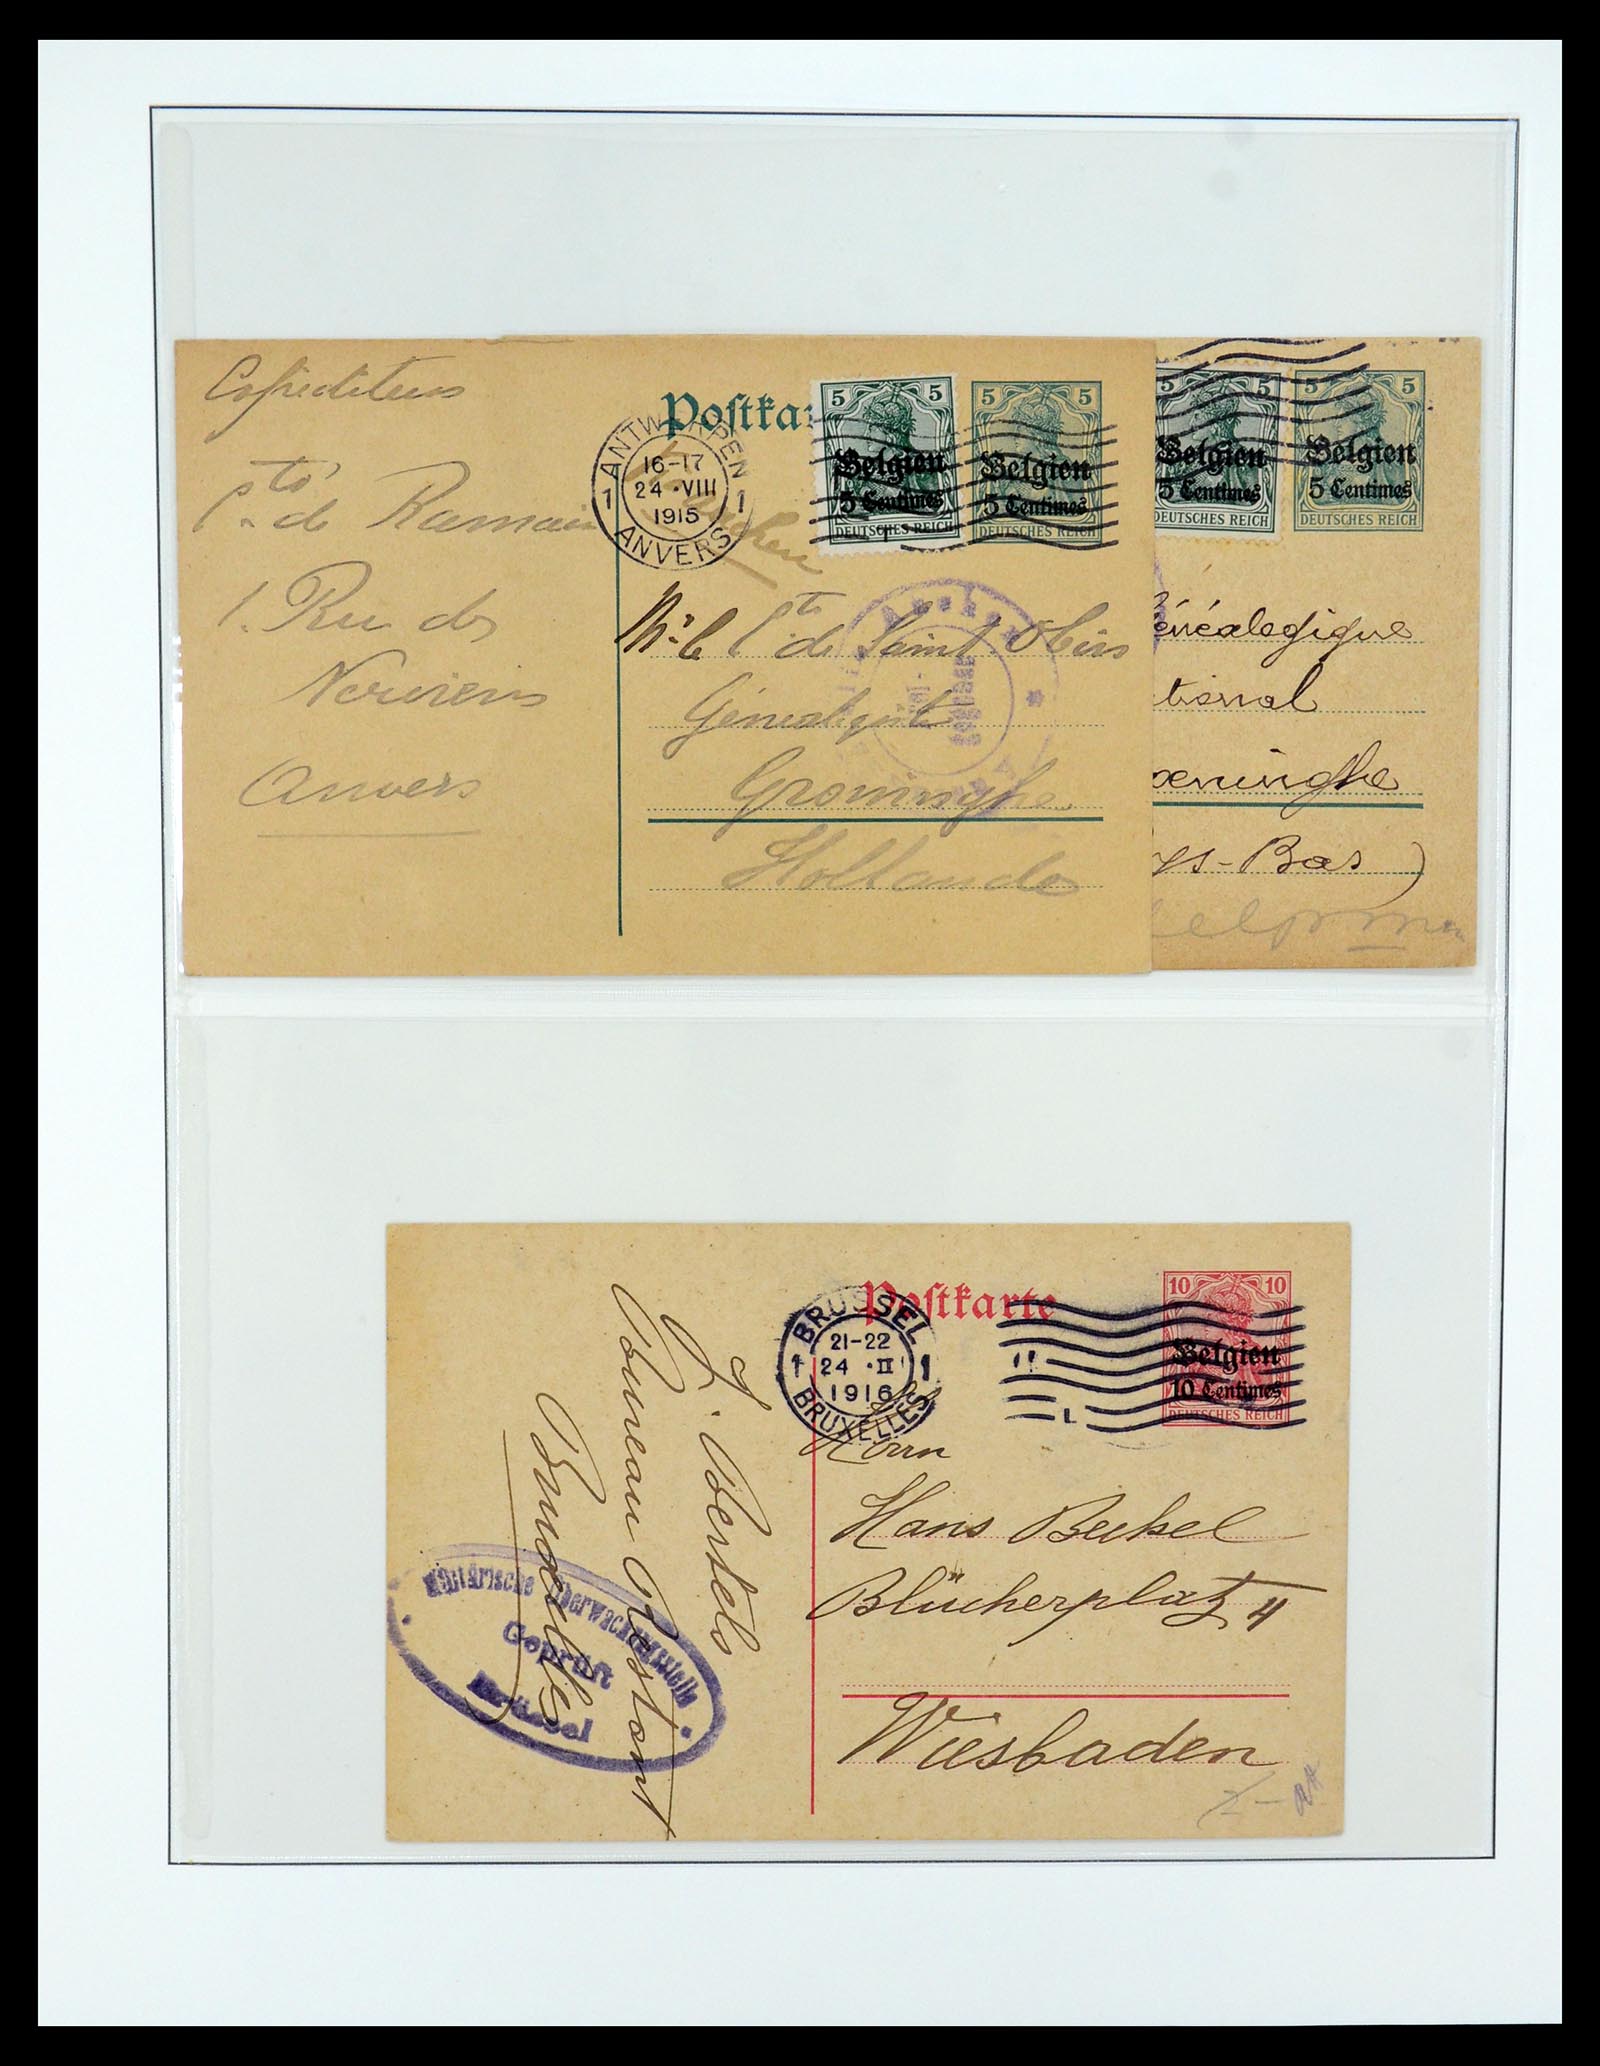 Postka
ANTWERPEN
1 16-17 1
24 ·VIII
1915
ANVERS
5 5
Belgien
5 Centimes
DEUTSCHES REICH
5 5
Belgien
5 Centimes
DEUTSCHES REICH
Cte de
1. Rue des
Anvers
Mr. le Cte de Saint
Généalogiste
Groninghe
Hollande
5
Belgien
5 Centimes
DEUTSCHES REICH
5 5
Belgien
5 Centimes
DEUTSCHES REICH
énéalogique
tional
oeninghe
ys-Bas)
Postkarte
BRUSSEL
1 21-22 1
24 ·II
1916
BRUXELLES
10 10
Belgien
10 Centimes
DEUTSCHES REICH
Herrn
Hans Beckel
Blücherplatz 4
Wiesbaden
J. Bertels
Bureau Restant
Bruxelles
Militärische Überwachungsstelle
Geprüft
Brüssel